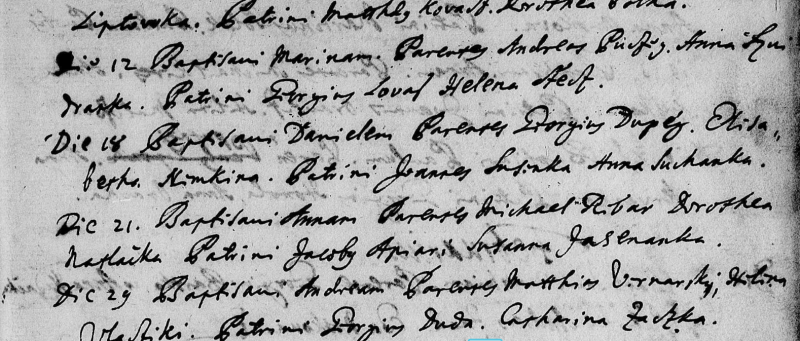 Liptowska. Patrini Matthey Kovacs. Dorothea
Die 12 Baptisavi Marinam. Parentes Andreas Anna
draska. Patrini Georgius Lovas Helena
Die 18 Baptisavi Danielem Parentes Georgius Dupey. Elisa,,
betha. Nimkina. Patrini Joannes Susinka Anna Suchanka.
Die 21. Baptisavi Annam Parentes Michael Ribar Dorothea
Naslacka Patrini Jacoby Apiaris Susanna Jasenanka.
Die 29 Baptisavi Andream Parentes Matthias Vernarsky,
Patrini Georgius Duda. Catharina